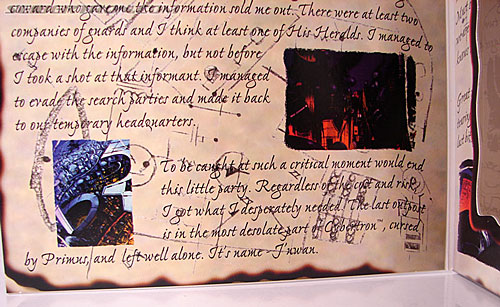 who gave me the information sold me out. There were at least two
companies of guards and I think at least one of His Heralds. I managed to
escape with the information, but not before
I took a shot at that informant. I managed
to evade the search parties and made it back
to our temporary headquarters.
To be caught at such a critical moment would end
this little party. Regardless of the cost and risk
I got what I desperately needed. The last outpost
is in the most desolate part of Cybertron™, cursed
by Primus, and left well alone. It's name - J'nwan.